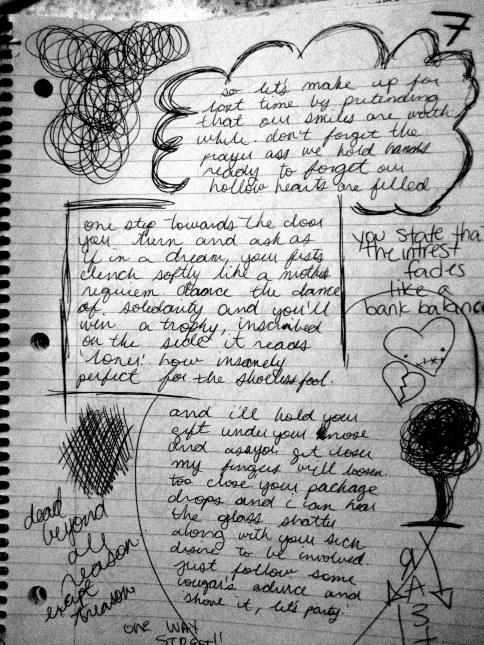 7
so let's make up for
lost time by pretending
that our smiles are worth
while. don't forget the
prayer ass we hold hands
ready to forget our
hollow hearts are filled
one step towards the door
you turn and ask as
if in a dream, your fists
clench softly like a mothers
requiem. dance the dance
of solidarity and you'll
win a trophy, inscribed
on the side it reads
'loner.' how insanely
perfect for the shoeless fool.
you state tha
the intrest
fades
like a
bank balance
and i'll hold your
gift under your nose
and as you get closer
my fingers will loosen.
too close your package
drops and i can hear
the glass shatter
along with your sick
desire to be involved.
just follow some
cougar's advice and
'shove it, let's party.'
dead
beyond
all
reason
exept
treason
ONE WAY
STREET!!